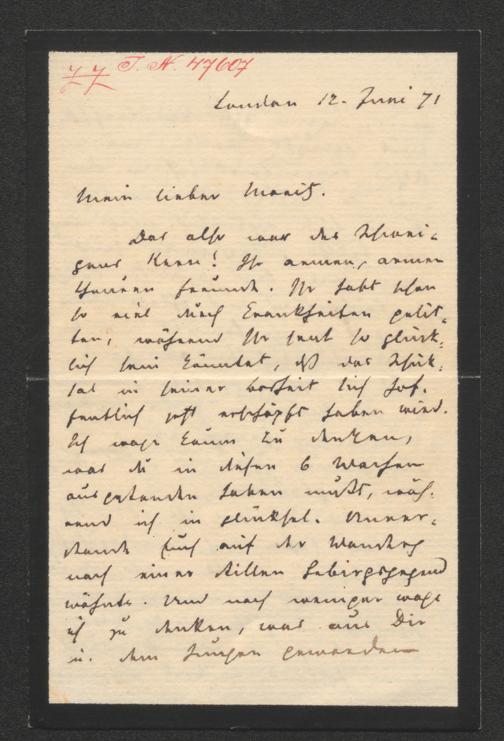 J. N. 47607
London 12. Juni 71
Mein lieber Moriz.
Das also war des Schwei-
gens Kern! Ihr armen, armen
theuren Freunde. Ihr habt schon
so viel durch Krankheiten gelit-
ten, während Ihr sonst so glück-
lich sein könntet, dß das Schick-
sal in seiner Bosheit sich hof-
fentlich jetzt erschöpft haben wird.
Ich wage kaum zu denken,
was du in diesen 6 Wochen
ausgestanden haben mußt, wäh-
rend ich in glücksel. Unver-
stande Euch auf der Wanderg
nach einer stillen Gebirgsgegend
wähnte. Und noch weniger wage
ich zu denken, was aus Dir
u. dem Jungen geworden